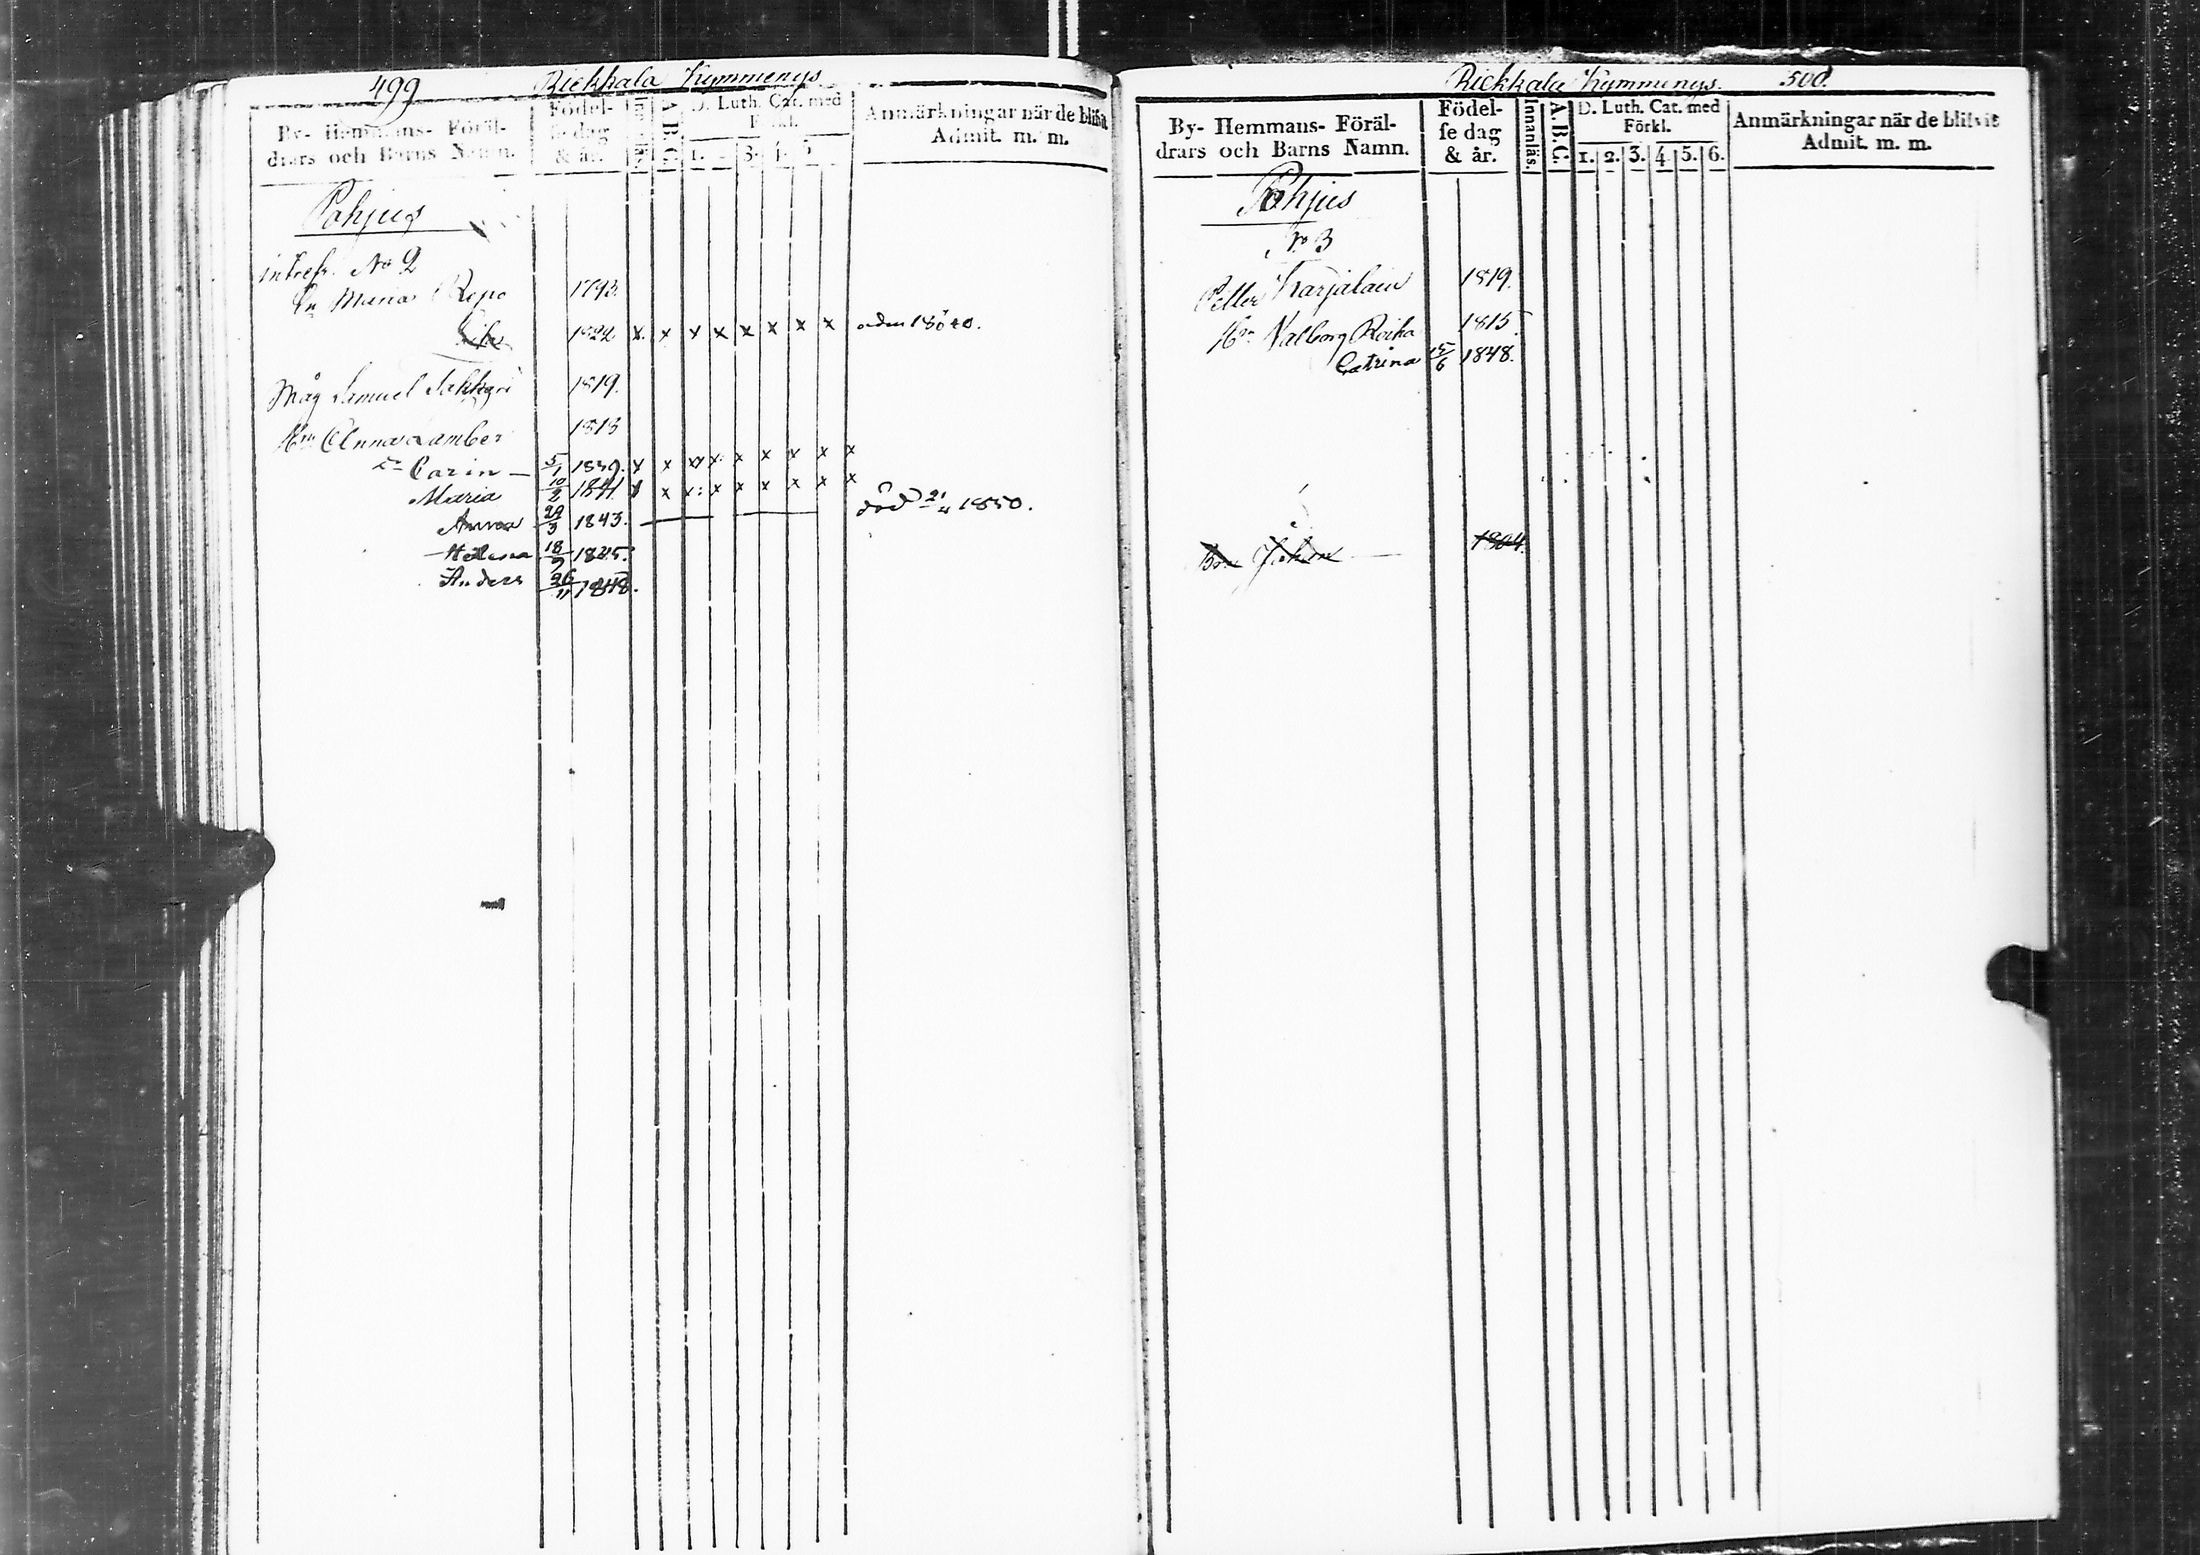 499 Riekkala Kymmenys
By- Hemmans- Föräl-
drars och Barns Namn.
Födel-
se dag
& år.
A.B.C.
D. Luth. Cat. med
Förkl.
1. 3. 4. 5.
Anmärkningar när de blifvit
Admit. m. m.
Pohjus
No 2
En Maria Repo 1793.
1822 x x x x x x x x adm 1840.
Måg Samuel 1819.
Hru Anna Lamber 1813
Dr Carin — 5/1 1839. x x x x x x x x x
Maria 10/2 1841. x x x x x x x x x
Anna 29/3 1843. död 21/4 1850.
Helena 18/9 1845.
Anders 26/11 1848.
Riekkala Kymmenys. 500.
By- Hemmans- Föräl-
drars och Barns Namn.
Födel-
se dag
& år.
Innanläs.
A.B.C.
D. Luth. Cat. med
Förkl.
1. 2. 3. 4. 5. 6.
Anmärkningar när de blifvit
Admit. m. m.
Pohjus
No 3
Petter Karjalain 1819.
Hru Valborg Roiha 1815
Catrina 15/6 1848.
Bro Johan — 1804